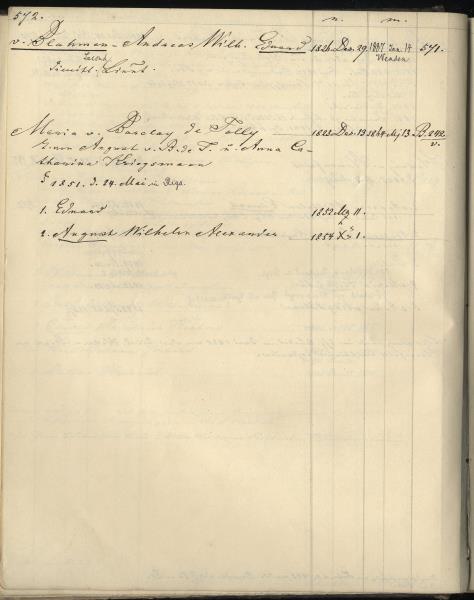 572.
n. m.
v. Blahmen. Andreas Wilh. Eduard 1826 Dec. 29. 1887 Jan. 14 571.
Wenden
dimitt. Lieut.
Maria v. Barclay de Tolly 1823 Dec. 13. 1864 Mz 13. B. 242.
v. August v. B. de T. u. Anna Ca-
tharina Kriegsmann
1851. d. 24. Mai in Riga.
1. Eduard 1852 Mz 11.
2. August Wilhelm Alexander 1854 X 1.